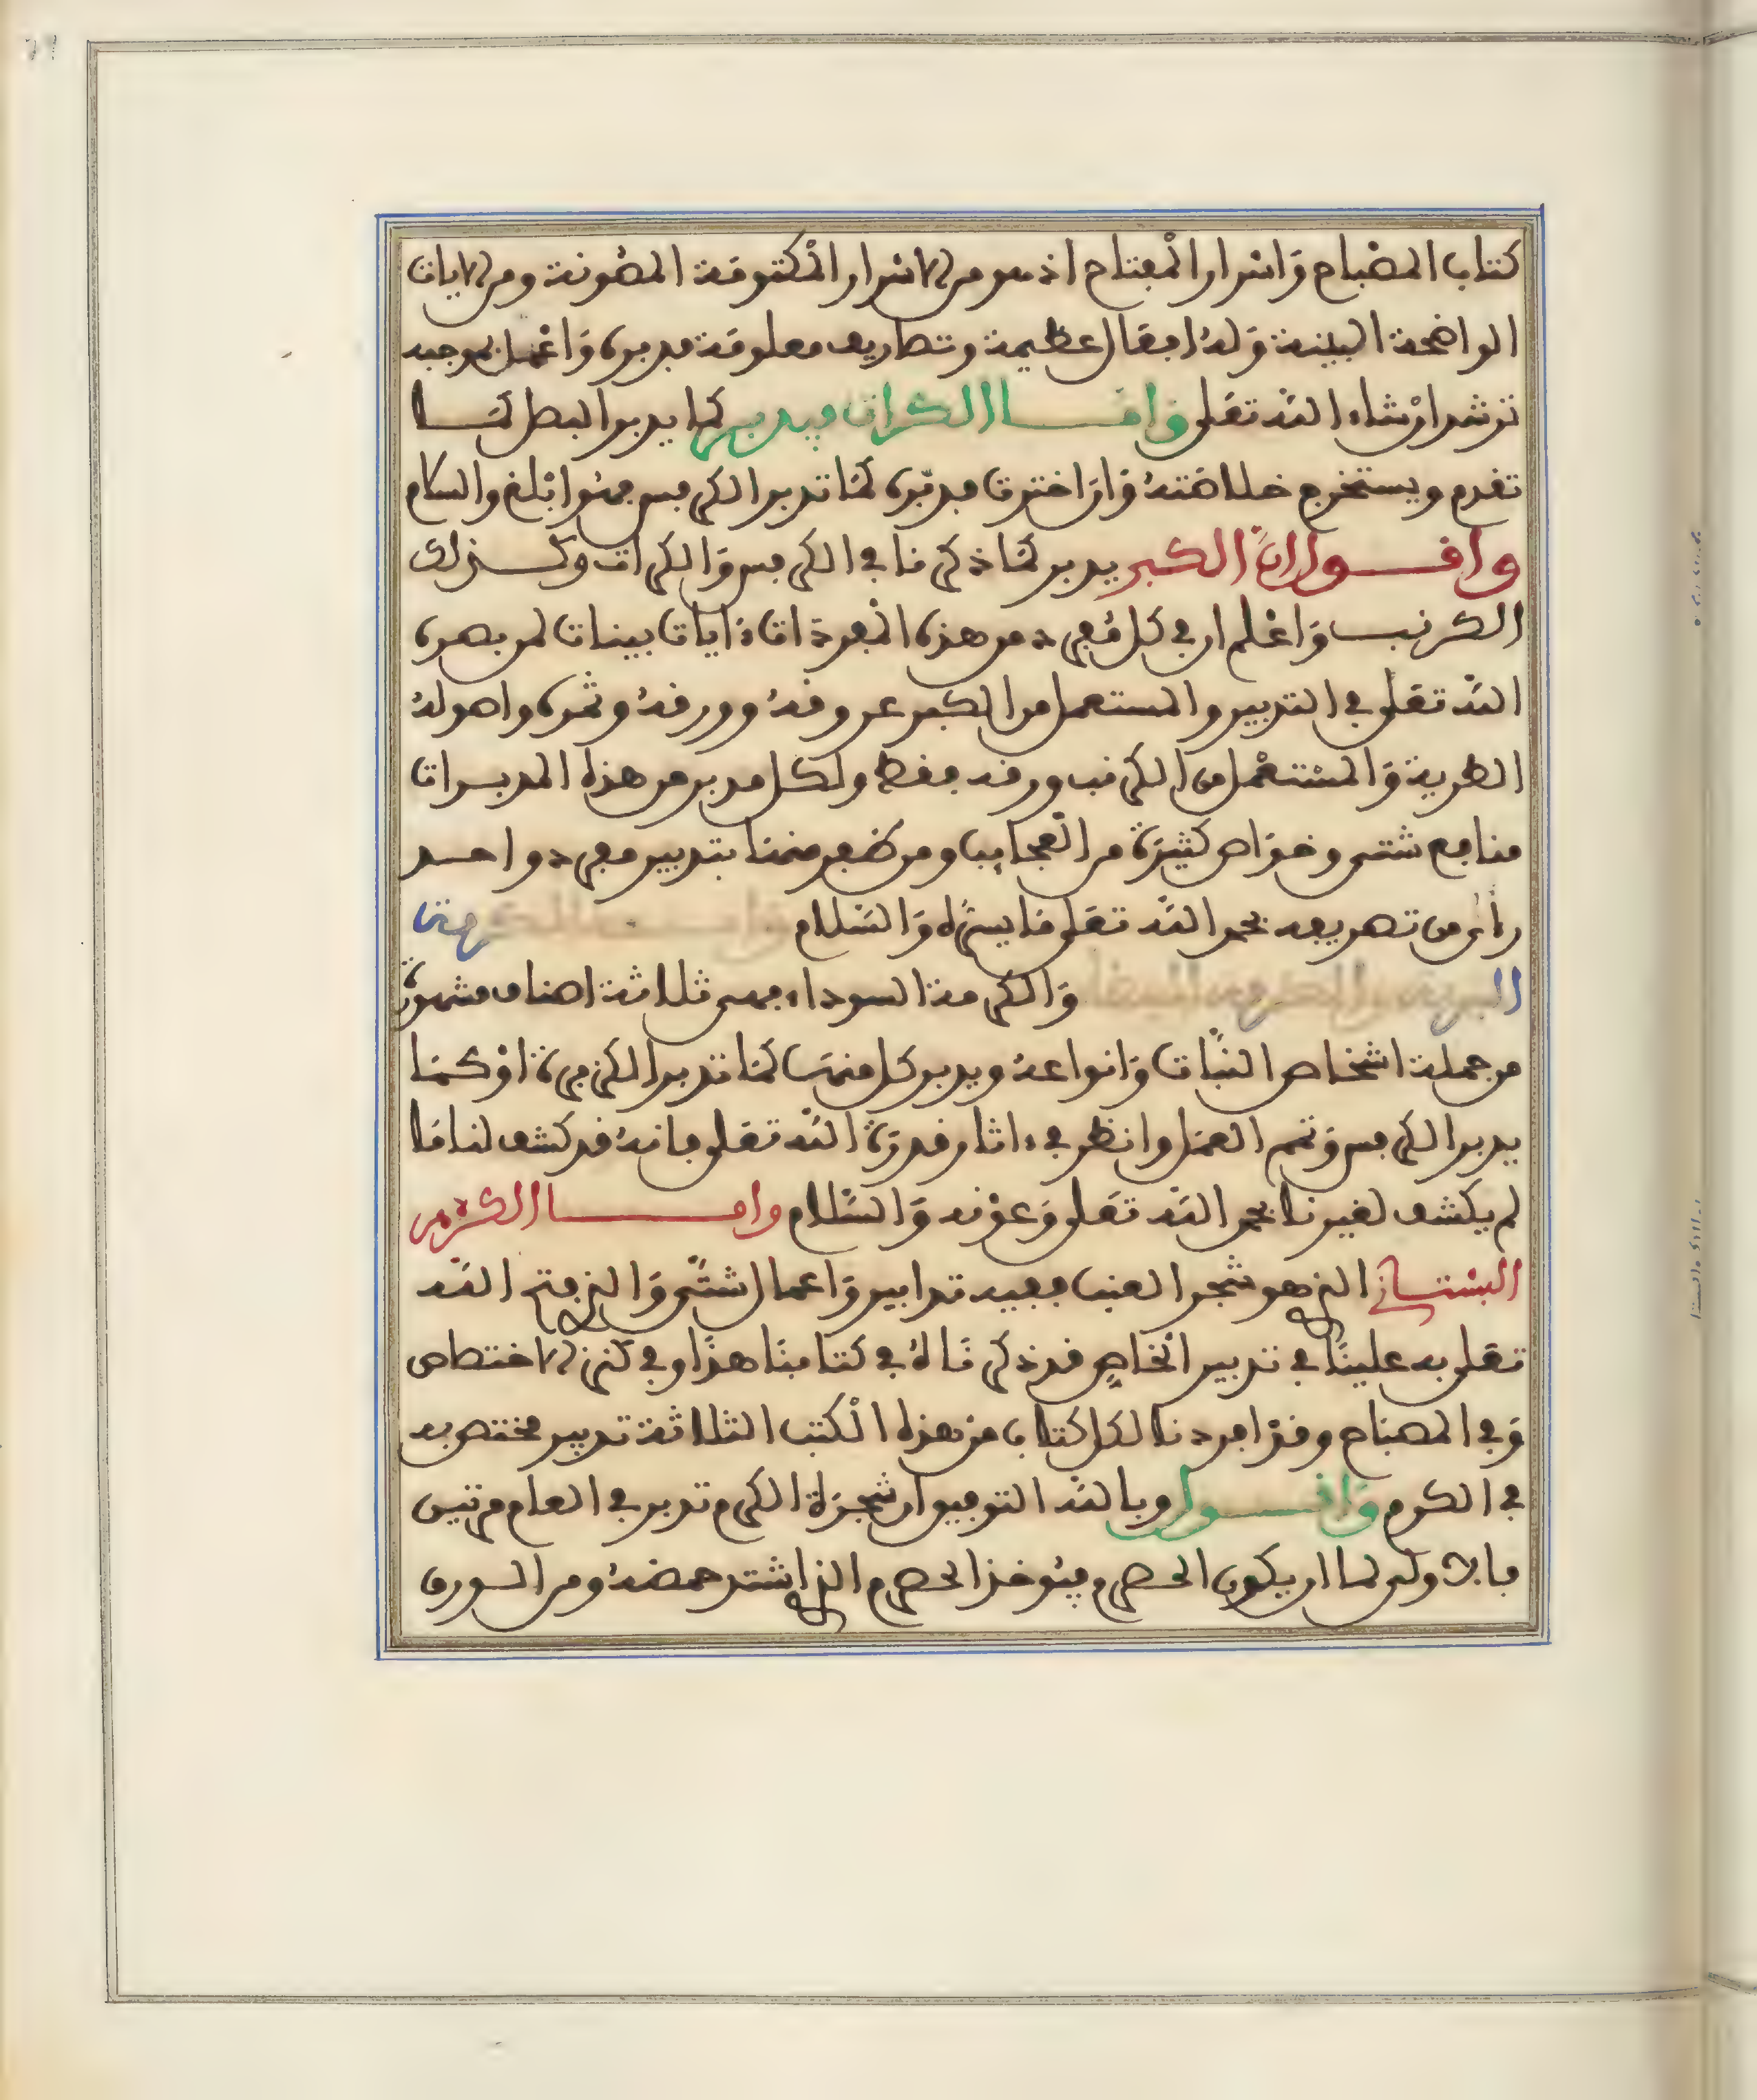 كتاب المصباح واسرار المفتاح اذ هو من الاسرار المكتومة المصونة ومن الايات
الواضحة البينة وله افعال عظيمة وتصاريف معلومة مدبره واعمل بموجبه
ترشد ان شاء الله تعلى واما الكراث فيدبر كما يدبر البصل كما
تقدم ويستخرج خلاصته وان اخترت مدبره كما تدبر الكرفس فهو ابلغ والسلام
واقول ان الكبر يدبر كما ذكرنا في الكرفس والكراث وكذلك
الكرنب واعلم ان في كل مفرد من هذه المفردات ايات بينات لمن بصره
الله تعلى في التدبير والمستعمل من الكبر عروقه وورقه وثمره واصوله
الطرية والمستعمل من الكرنب ورقه فقط ولكل مدبر من هذه المدبرات
منافع شتى وخواص كثيرة من العجايب ومن ظفر منها بتدبير مفرد واحد
راى من تصريفه بحمد الله تعلى ما يسره والسلام واما الكرمة
البرية والكرمة البيضاء والكرمة السوداء فهى ثلاثة اصناف مشهورة
من جملة اشخاص النبات وانواعه ويدبر كل منها كما تدبر الكزبرة او كما
يدبر الكرفس وتمم العمل وانظر في ءاثار قدرة الله تعلى فانه قد كشف لنا ما
لم يكشف لغيرنا بحمد الله تعلى وعونه والسلام واما الكرم
البستاني الذي هو شجر العنب ففيه تدابير واعمال شتى والذي فتح الله
تعلى به علينا في تدبير الخاص قد ذكرناه في كتابنا هذا وفي كنز الاختصاص
وفي المصباح وقد افردنا لكل كتاب من هذه الكتب الثلاثة تدبير مختص به
في الكرم واقول وبالله التوفيق ان شجرة الكرم تدبر في العام مرتين
فالاولى لما ان يكون الحصرم فيؤخذ الحصرم الذي اشتد حمضه ومن الورق